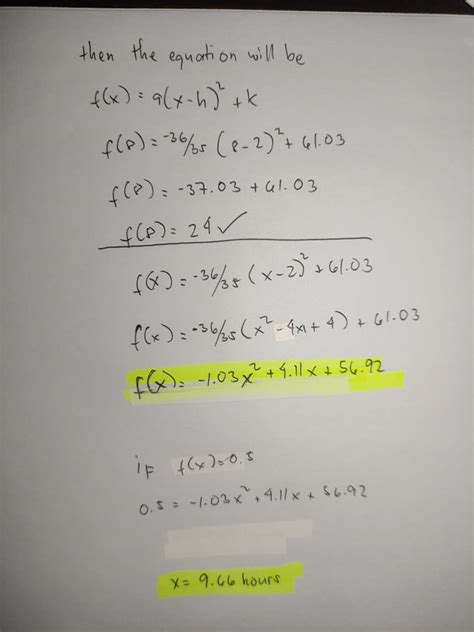 then the equation will be
f(x) = a(x-h)² + k
f(8) = -36/35 (8-2)² + 61.03
f(8) = -37.03 + 61.03
f(8) = 24 ✓
f(x) = -36/35 (x-2)² + 61.03
f(x) = -36/35 (x² - 4x + 4) + 61.03
f(x) = -1.03x² + 4.11x + 56.92
if f(x) = 0.5
0.5 = -1.03x² + 4.11x + 56.92
x = 9.66 hours